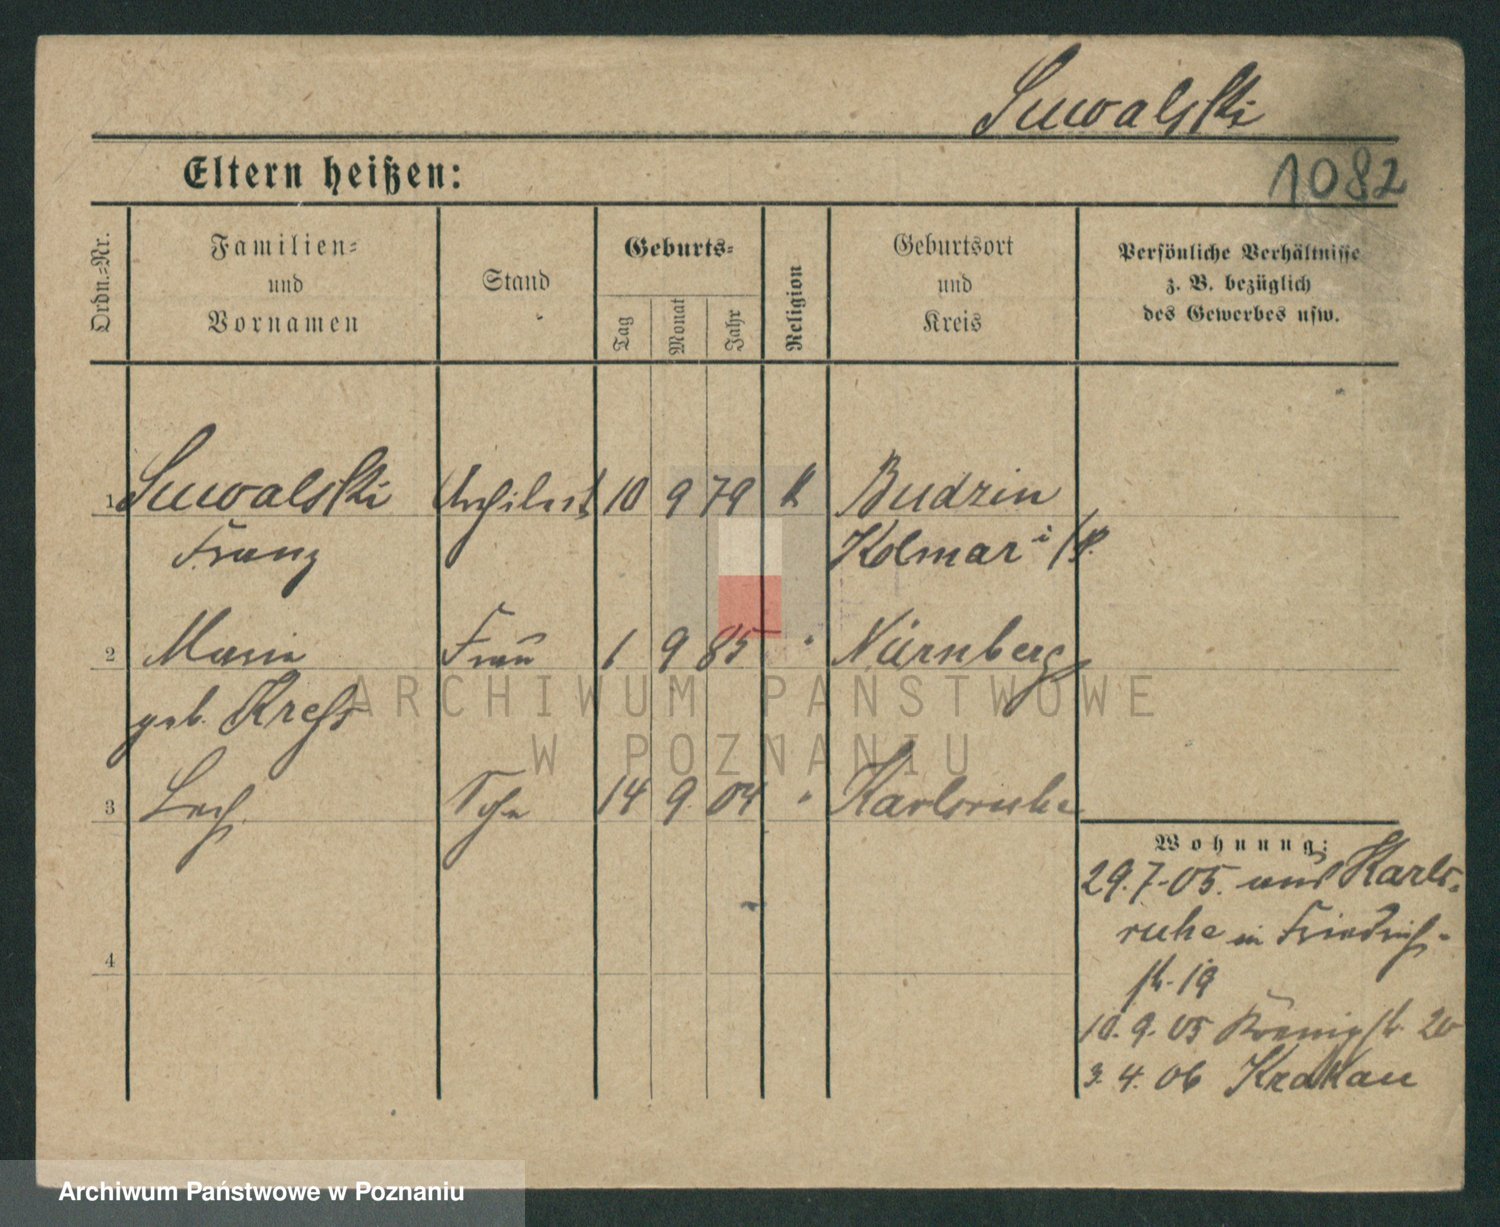 Suwalski
1082
Eltern heißen:
Ordn.=Nr.
Familien=
und
Vornamen
Stand
Geburts=
Tag
Monat
Jahr
Religion
Geburtsort
und
Kreis
Persönliche Verhältnisse
z. B. bezüglich
des Gewerbes usw.
1 Suwalski Architect 10 9 79 k Budzin
Franz Kolmar i/P.
2 Maria Frau 1 9 85 " Nürnberg
geb. Kreß
3 Lech Sohn 14 9 04 " Karlsruhe
4
Wohnung:
29.7.05. aus Karls-
ruhe in Friedrich-
str. 19
10.9.05 Königstr. 20
3.4.06 Krakau
ARCHIWUM PAŃSTWOWE
W POZNANIU
Archiwum Państwowe w Poznaniu